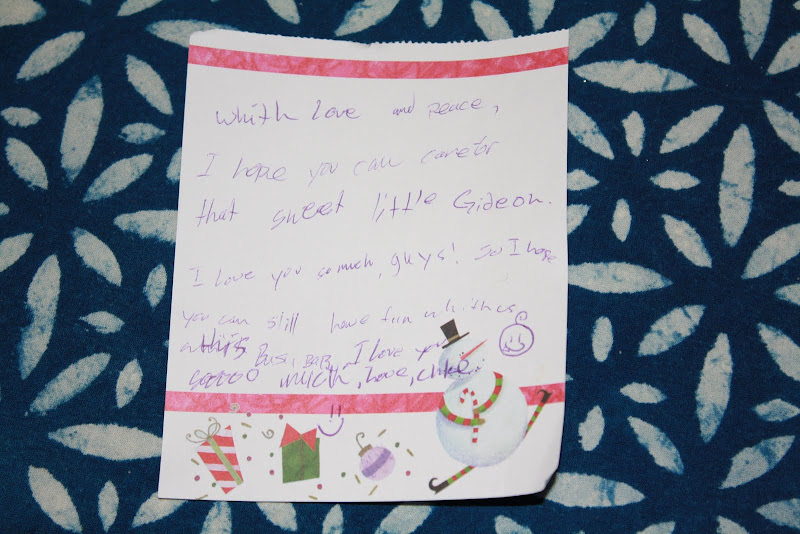 whith love and peace,
I hope you can care for
that sweet little Gideon.
I love you so much, guys! so I hope
you can still have fun whith us
I love you
soooo much, love,